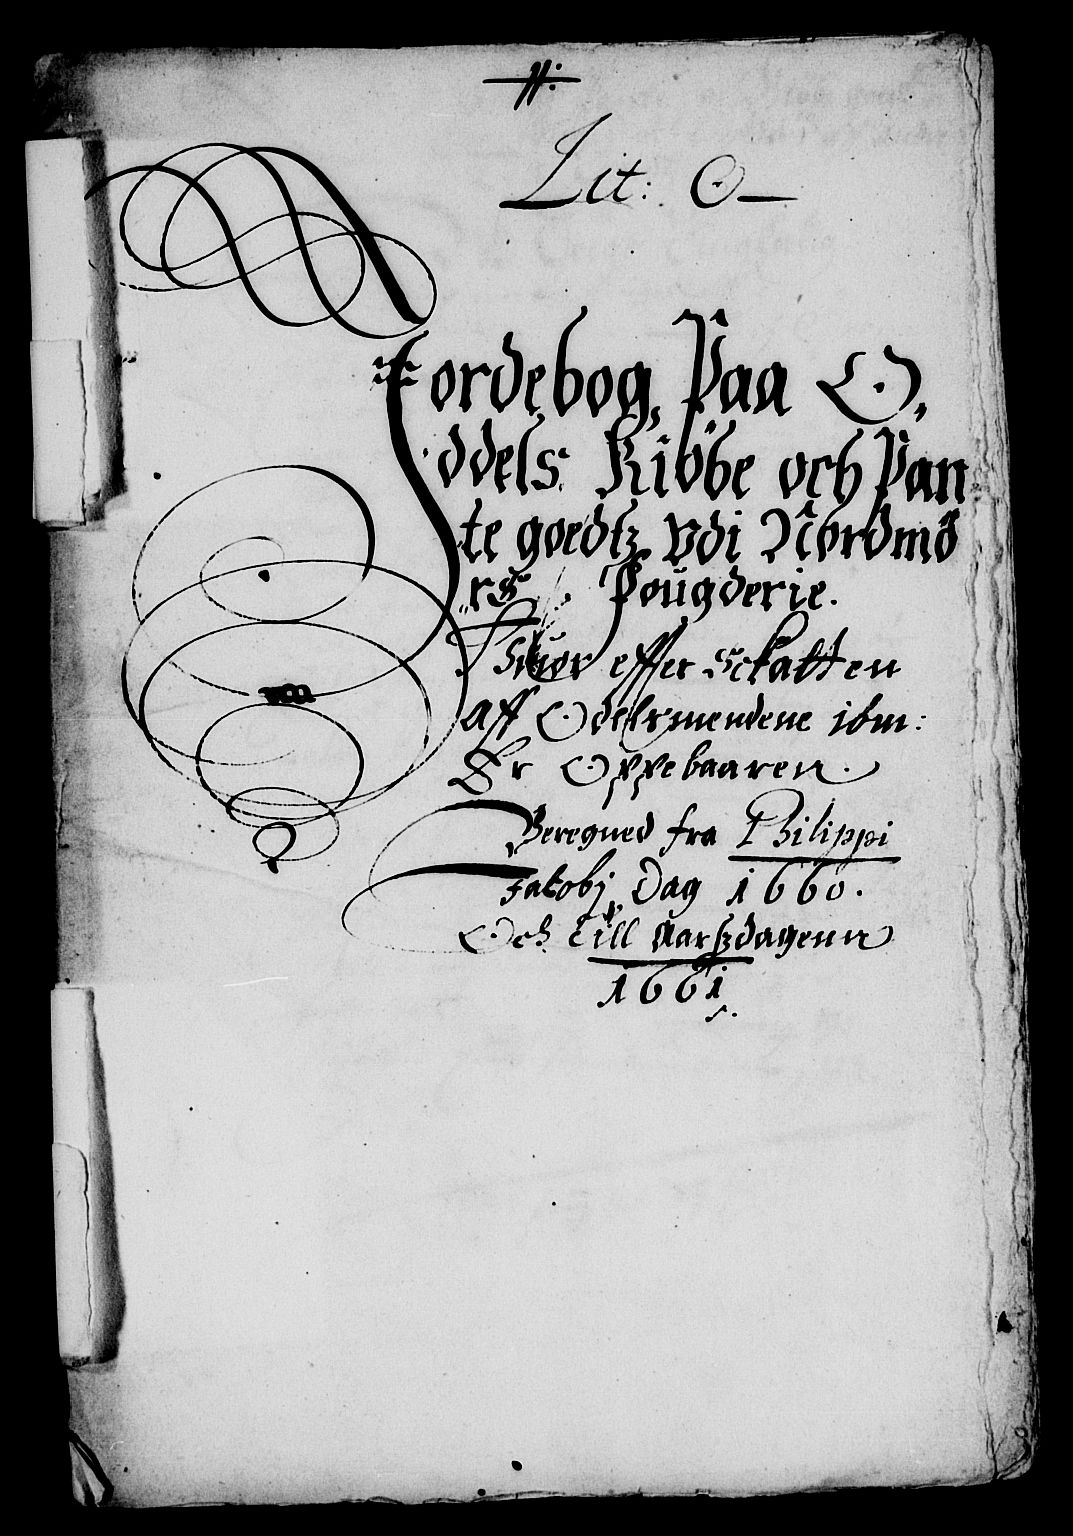 N:
Lit: O
Jordebog, Paa O,
ddels Kiöbe och Pan
te goedtz Vdi Nordmö
rs Fougderie.
Huor effter Schatten
aff Odelsmendene ibm:
Er Oppebaaren.
Beregned fra Philippi
Jakobj Dag 1660.
Och Till Aarszdagenn
1661.